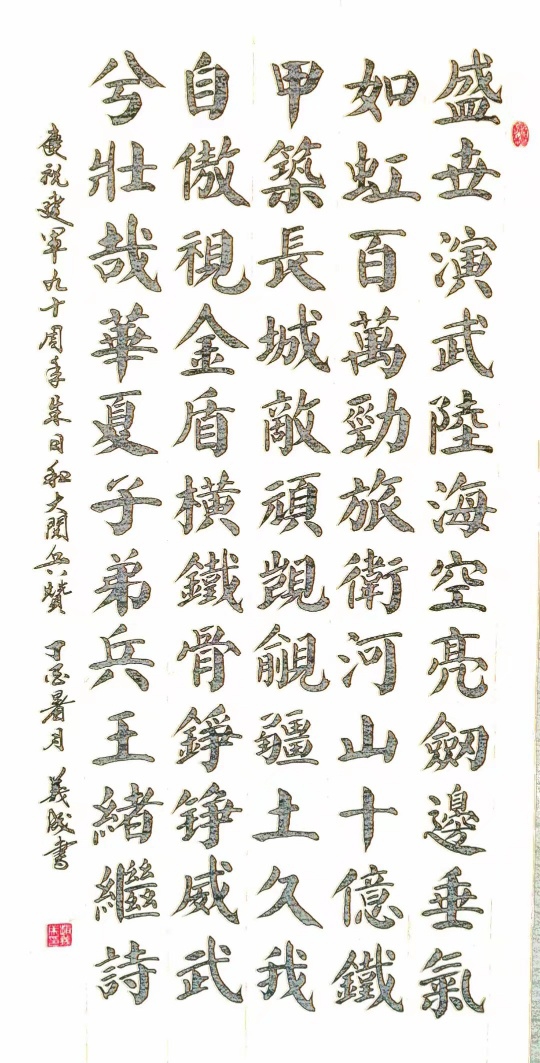 盛世演武陸海空亮劍邊垂氣
如虹百萬勁旅衛河山十億鐵
甲築長城敵頑覬覦疆土久我
自傲視金盾橫鐵骨錚錚威武
兮壯哉華夏子弟兵王緒繼詩
慶祝建军九十周年朱日和大閱兵贊 丁酉暑月 義成書